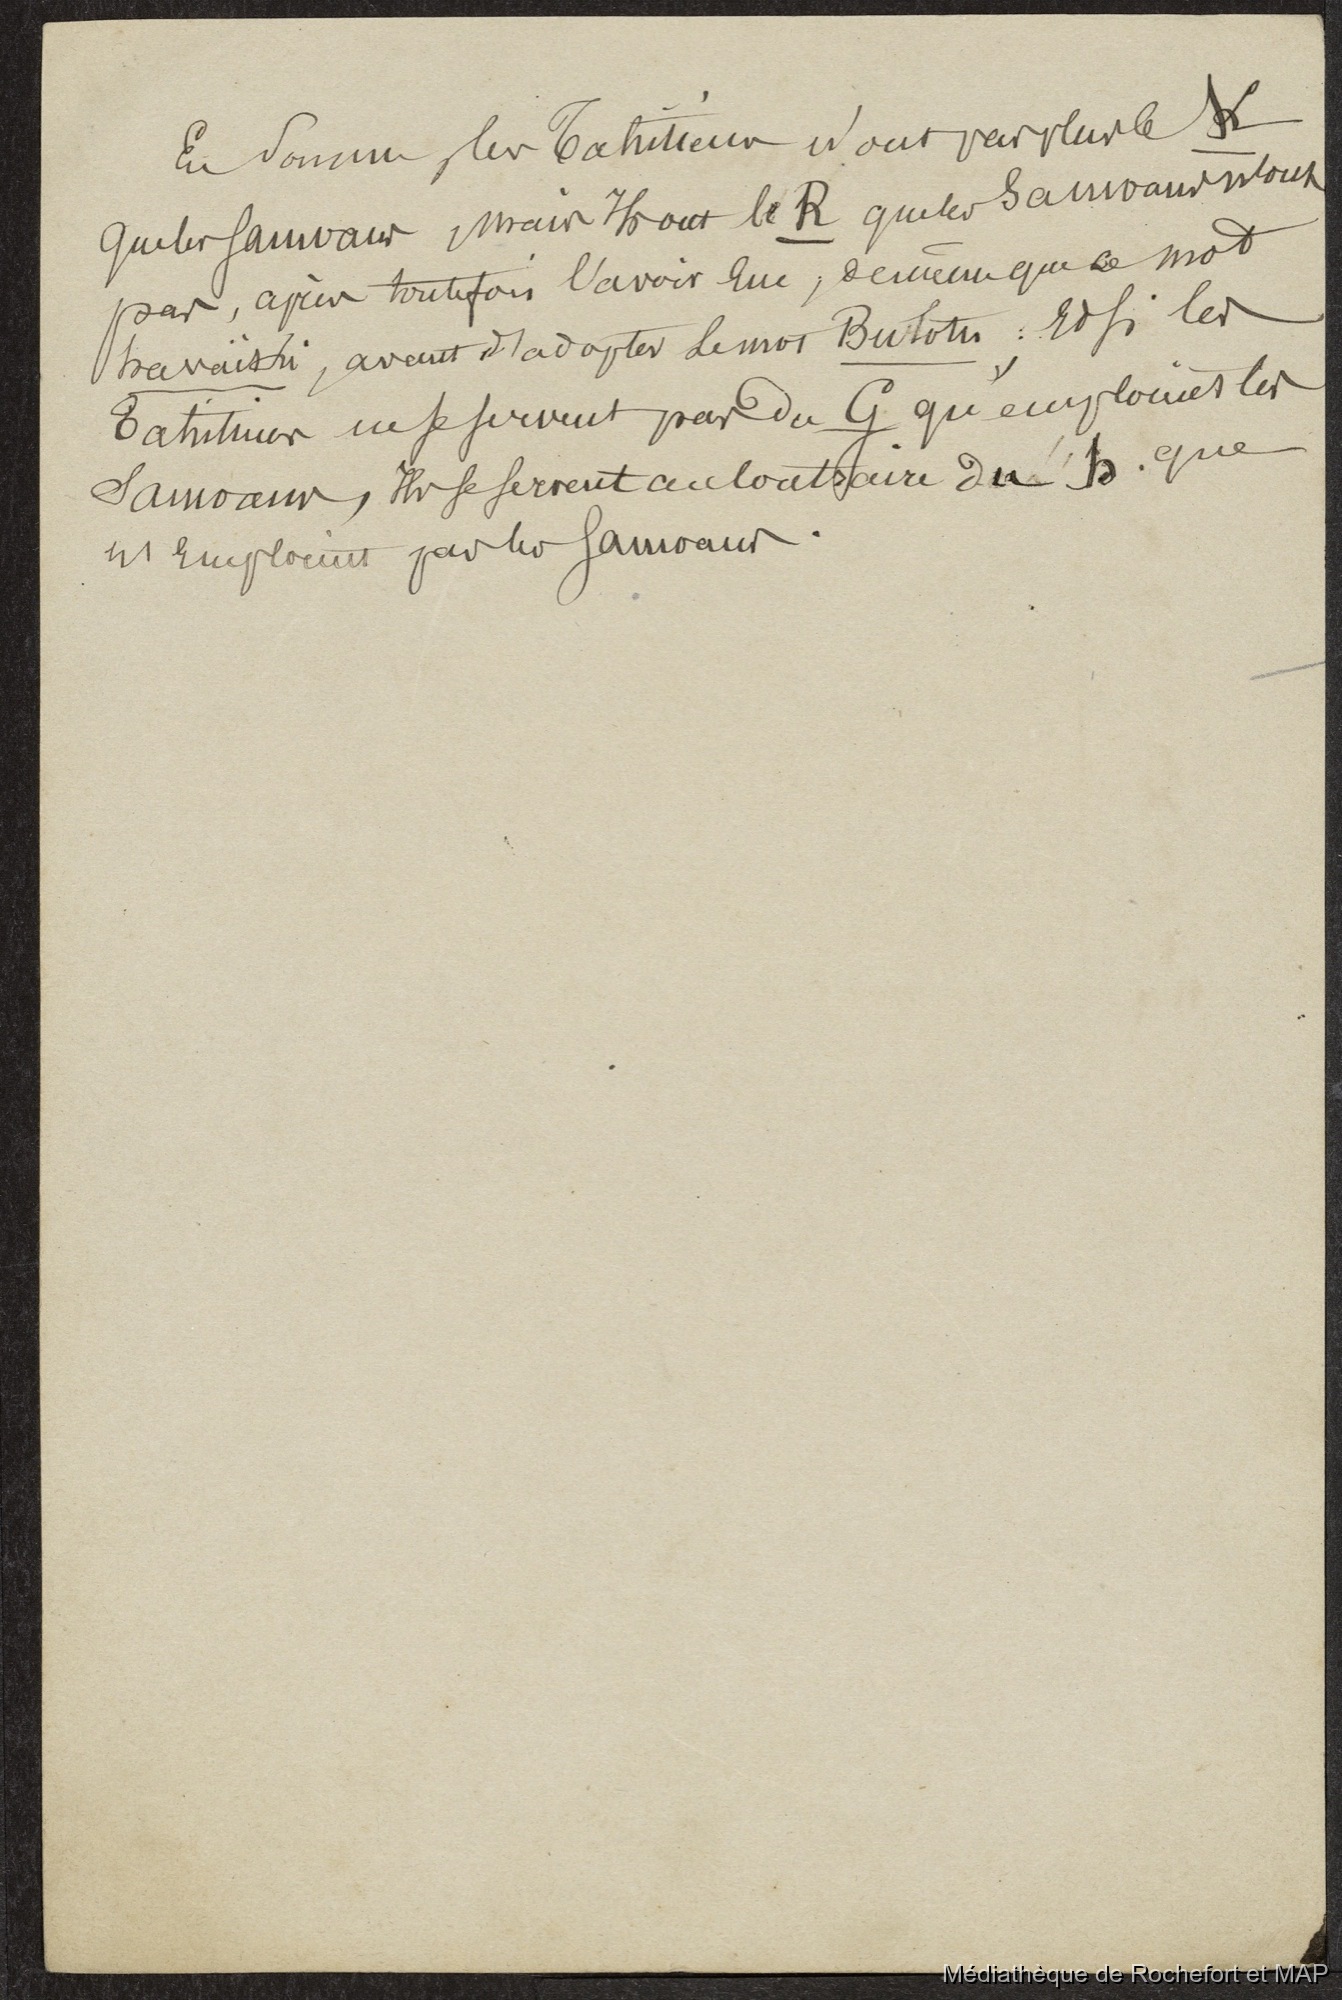 En Somme, les Tahitiens n'ont pas plus le K
que les Samoans, mais Ils ont le R que les Samoans n'ont
pas, après toutefois l'avoir Eue, de même que ce mot
havaiski, avant d'adopter le mot Bulotu : Et si les
Tahitiens ne se servent pas du G qu'emploient les
Samoans, Ils se servent au Contraire du h. que
n'Emploient pas les Samoans.
Médiathèque de Rochefort et MAP